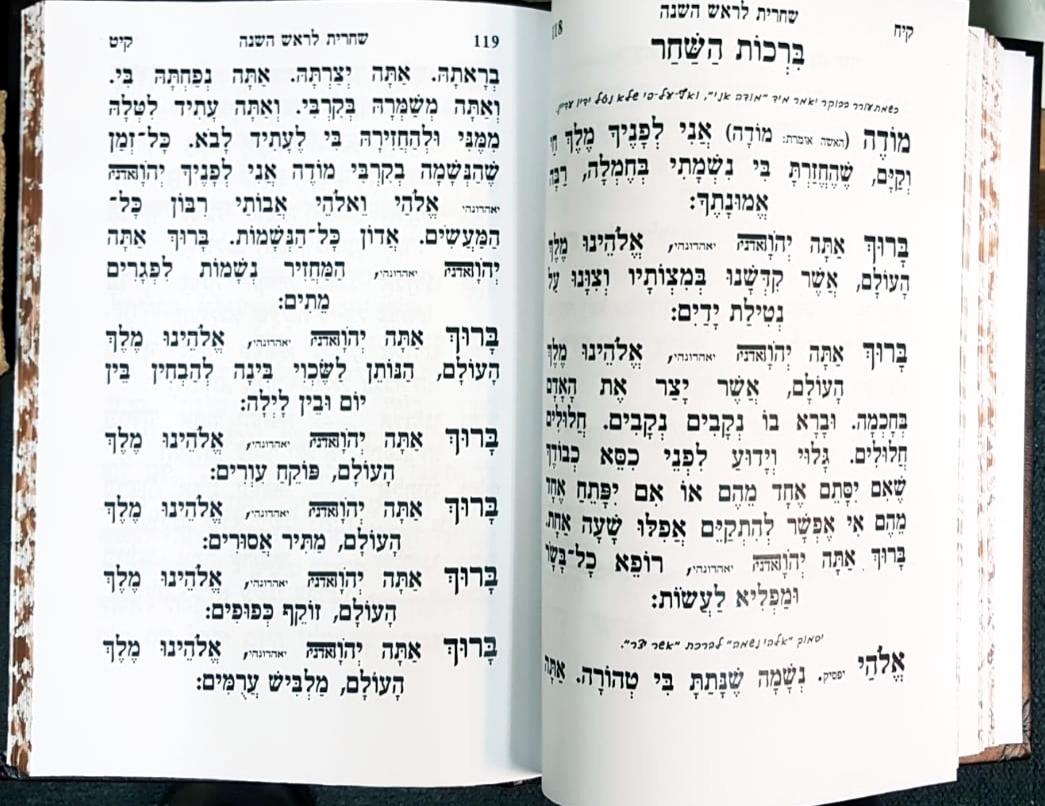 118 שחרית לראש השנה קיח
בִּרְכוֹת הַשַּׁחַר
כשמתעורר בבוקר יאמר מיד "מודה אני", ואף־על־פי שלא נטל ידיו עדיין.
מוֹדֶה (האשה אומרת: מוֹדָה) אֲנִי לְפָנֶיךָ מֶלֶךְ חַי
וְקַיָּם, שֶׁהֶחֱזַרְתָּ בִּי נִשְׁמָתִי בְּחֶמְלָה, רַבָּה
אֱמוּנָתֶךָ:
בָּרוּךְ אַתָּה יְהֹוָהאדניה יאהדונהי, אֱלֹהֵינוּ מֶלֶךְ
הָעוֹלָם, אֲשֶׁר קִדְּשָׁנוּ בְּמִצְוֹתָיו וְצִוָּנוּ עַל
נְטִילַת יָדַיִם:
בָּרוּךְ אַתָּה יְהֹוָהאדניה יאהדונהי, אֱלֹהֵינוּ מֶלֶךְ
הָעוֹלָם, אֲשֶׁר יָצַר אֶת הָאָדָם
בְּחָכְמָה. וּבָרָא בוֹ נְקָבִים נְקָבִים. חֲלוּלִים
חֲלוּלִים. גָּלוּי וְיָדוּעַ לִפְנֵי כִסֵּא כְבוֹדֶךָ
שֶׁאִם יִסָּתֵם אֶחָד מֵהֶם אוֹ אִם יִפָּתֵחַ אֶחָד
מֵהֶם אִי אֶפְשָׁר לְהִתְקַיֵּם אֲפִלּוּ שָׁעָה אֶחָת.
בָּרוּךְ אַתָּה יְהֹוָהאדניה יאהדונהי, רוֹפֵא כָל־בָּשָׂר
וּמַפְלִיא לַעֲשׂוֹת:
יסמוך "אלהי נשמה" לברכת "אשר יצר".
אֱלֹהַי יפסיק. נְשָׁמָה שֶׁנָּתַתָּ בִּי טְהוֹרָה. אַתָּה
119 שחרית לראש השנה קיט
בְרָאתָהּ. אַתָּה יְצַרְתָּהּ. אַתָּה נְפַחְתָּהּ בִּי.
וְאַתָּה מְשַׁמְּרָהּ בְּקִרְבִּי. וְאַתָּה עָתִיד לִטְּלָהּ
מִמֶּנִּי וּלְהַחֲזִירָהּ בִּי לֶעָתִיד לָבֹא. כָּל־זְמַן
שֶׁהַנְּשָׁמָה בְקִרְבִּי מוֹדֶה אֲנִי לְפָנֶיךָ יְהֹוָהאדניה
יאהדונהי אֱלֹהַי וֵאלֹהֵי אֲבוֹתַי רִבּוֹן כָּל־
הַמַּעֲשִׂים. אֲדוֹן כָּל־הַנְּשָׁמוֹת. בָּרוּךְ אַתָּה
יְהֹוָהאדניה יאהדונהי, הַמַּחֲזִיר נְשָׁמוֹת לִפְגָרִים
מֵתִים:
בָּרוּךְ אַתָּה יְהֹוָהאדניה יאהדונהי, אֱלֹהֵינוּ מֶלֶךְ
הָעוֹלָם, הַנּוֹתֵן לַשֶּׂכְוִי בִינָה לְהַבְחִין בֵּין
יוֹם וּבֵין לָיְלָה:
בָּרוּךְ אַתָּה יְהֹוָהאדניה יאהדונהי, אֱלֹהֵינוּ מֶלֶךְ
הָעוֹלָם, פּוֹקֵחַ עִוְרִים:
בָּרוּךְ אַתָּה יְהֹוָהאדניה יאהדונהי, אֱלֹהֵינוּ מֶלֶךְ
הָעוֹלָם, מַתִּיר אֲסוּרִים:
בָּרוּךְ אַתָּה יְהֹוָהאדניה יאהדונהי, אֱלֹהֵינוּ מֶלֶךְ
הָעוֹלָם, זוֹקֵף כְּפוּפִים:
בָּרוּךְ אַתָּה יְהֹוָהאדניה יאהדונהי, אֱלֹהֵינוּ מֶלֶךְ
הָעוֹלָם, מַלְבִּישׁ עֲרֻמִּים: